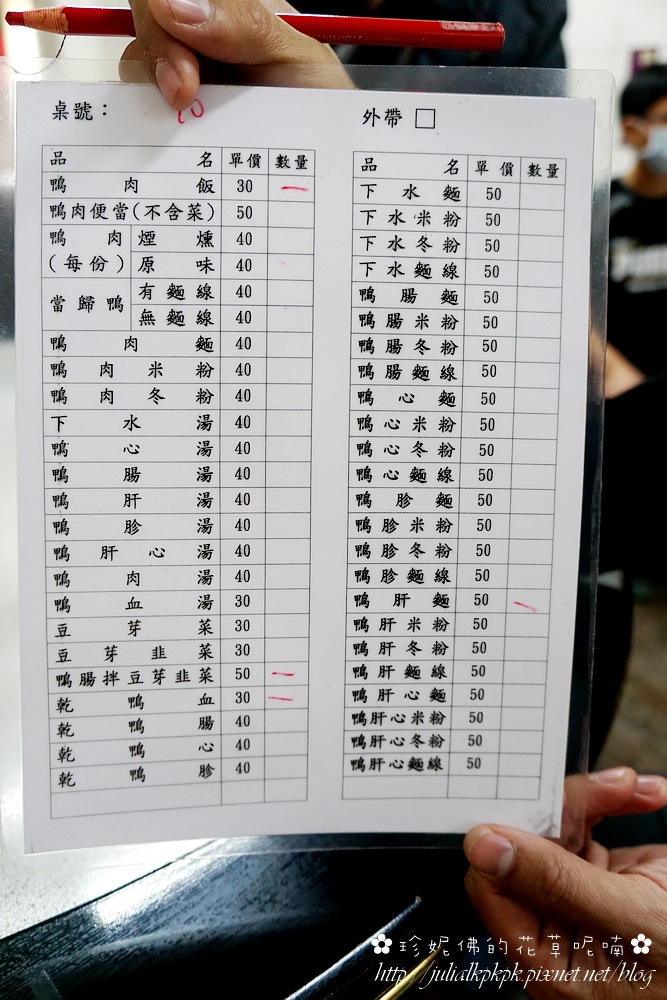 桌號： 10
外帶 □
品名 單價 數量
鴨肉飯 30 一
鴨肉便當(不含菜) 50
鴨肉(每份) 煙燻 40
原味 40
當歸鴨 有麵線 40
無麵線 40
鴨肉麵 40
鴨肉米粉 40
鴨肉冬粉 40
下水湯 40
鴨心湯 40
鴨腸湯 40
鴨肝湯 40
鴨胗湯 40
鴨肝心湯 40
鴨肉湯 40
鴨血湯 30
豆芽菜 30
豆芽韭菜 30
鴨腸拌豆芽韭菜 50 一
乾鴨血 30 一
乾鴨腸 40
乾鴨心 40
乾鴨胗 40
品名 單價 數量
下水麵 50
下水米粉 50
下水冬粉 50
下水麵線 50
鴨腸麵 50
鴨腸米粉 50
鴨腸冬粉 50
鴨腸麵線 50
鴨心麵 50
鴨心米粉 50
鴨心冬粉 50
鴨心麵線 50
鴨胗麵 50
鴨胗米粉 50
鴨胗冬粉 50
鴨胗麵線 50
鴨肝麵 50 一
鴨肝米粉 50
鴨肝冬粉 50
鴨肝麵線 50
鴨肝心麵 50
鴨肝心米粉 50
鴨肝心冬粉 50
鴨肝心麵線 50
✿珍妮佛的花草呢喃✿
http://julialkpkpk.pixnet.net/blog